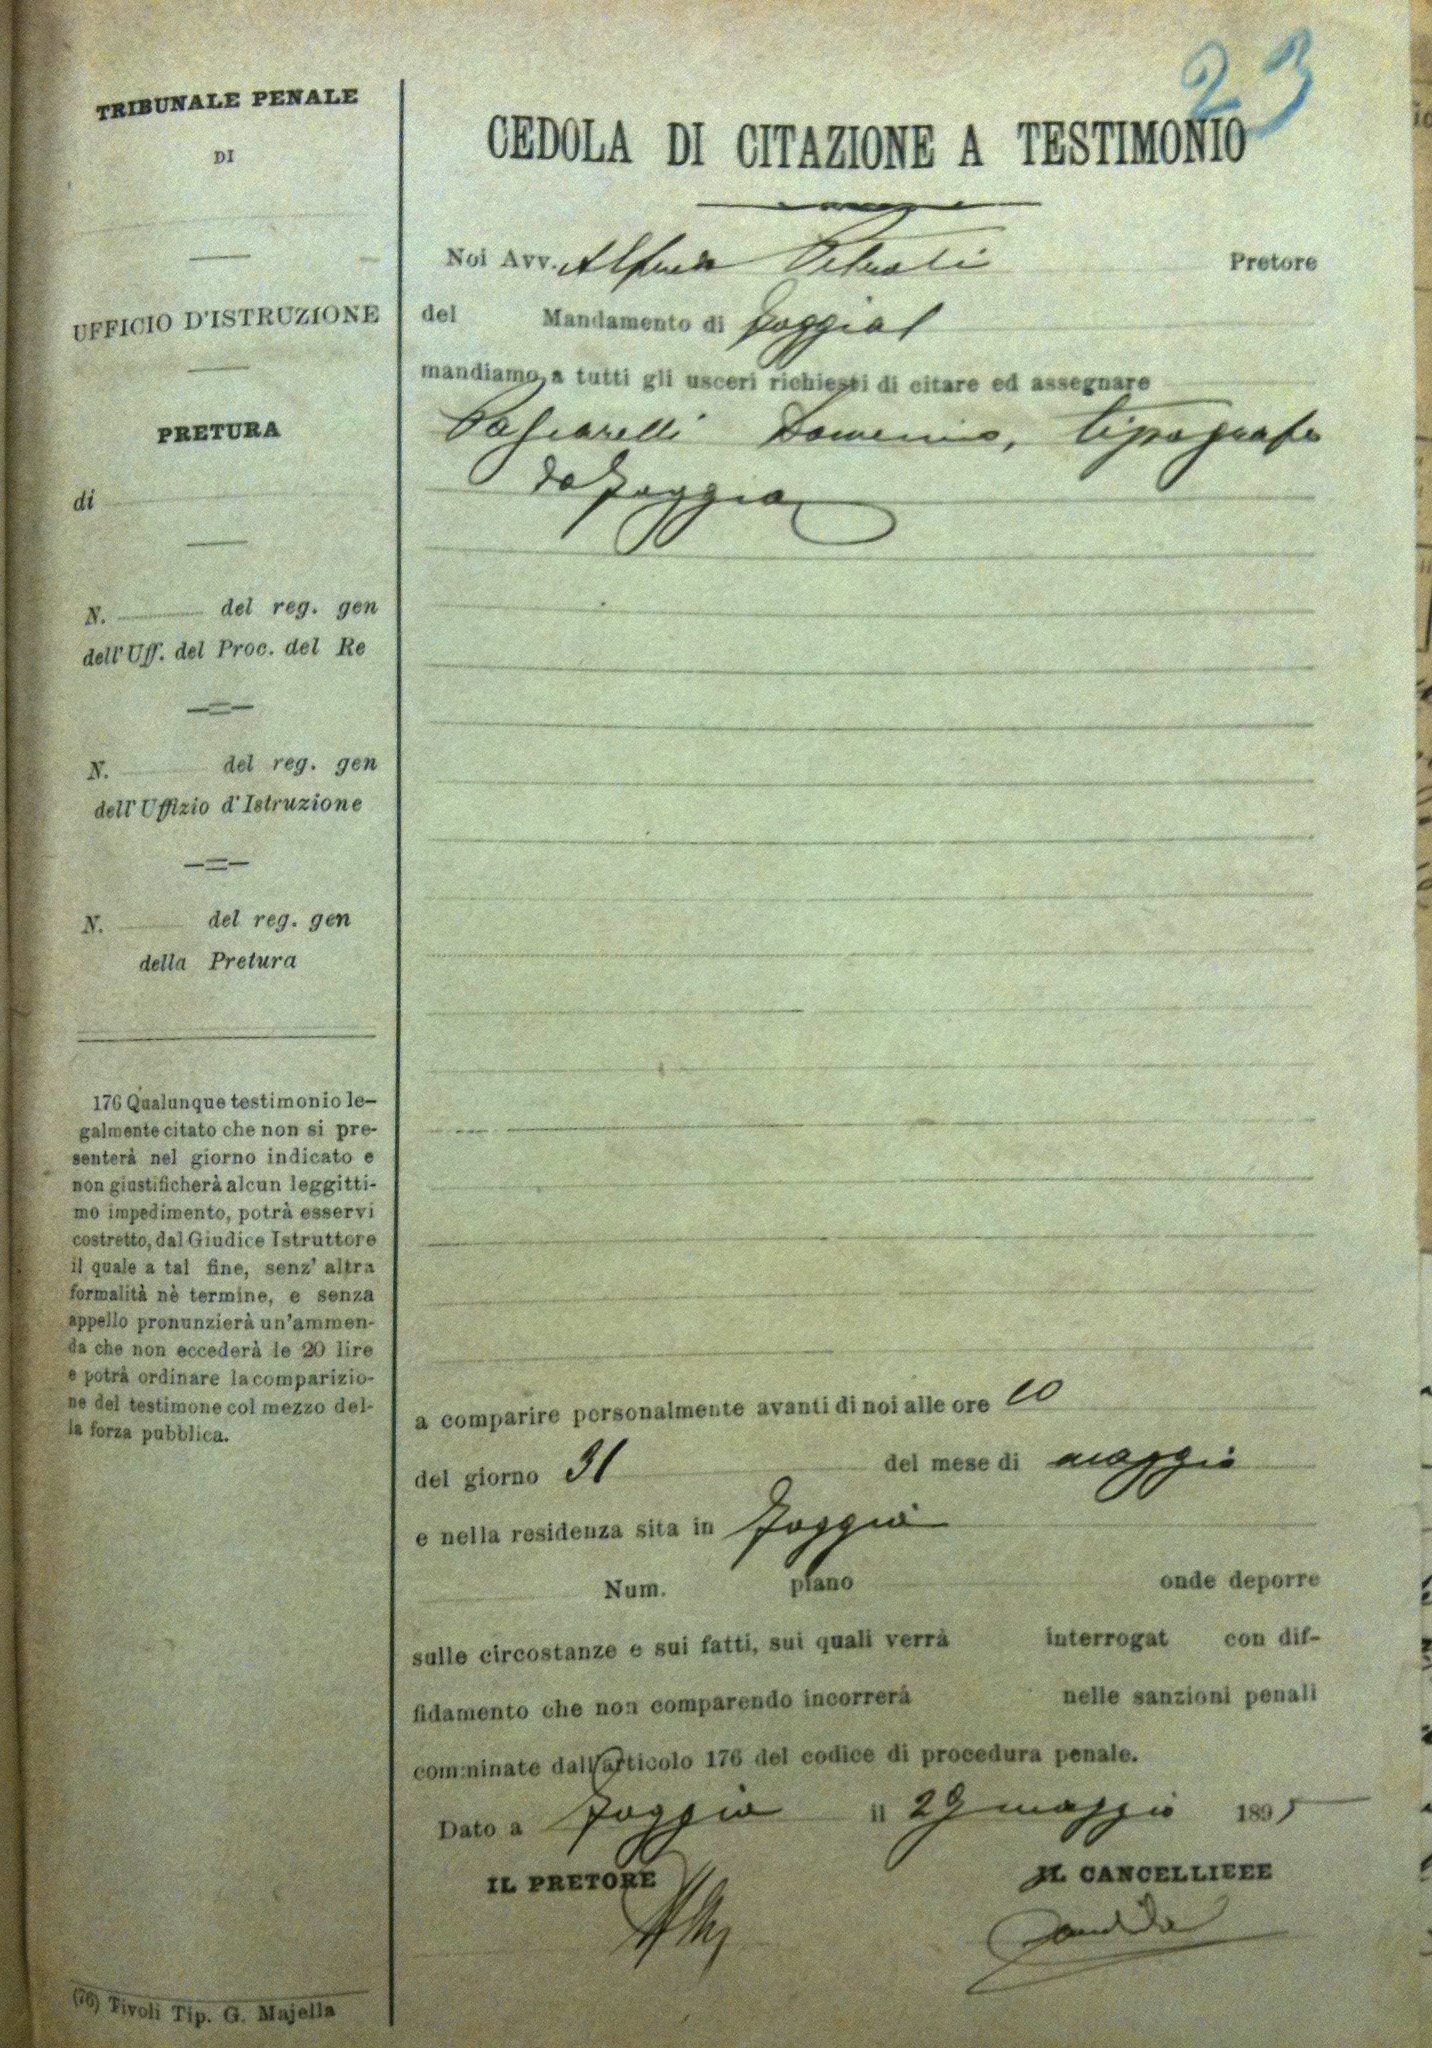 23
TRIBUNALE PENALE
DI
UFFICIO D'ISTRUZIONE
PRETURA
di
N. del reg. gen
dell'Uff. del Proc. del Re
N. del reg. gen
dell'Uffizio d'Istruzione
N. del reg. gen
della Pretura
176 Qualunque testimonio le-
galmente citato che non si pre-
senterà nel giorno indicato e
non giustificherà alcun leggitti-
mo impedimento, potrà esservi
costretto, dal Giudice Istruttore
il quale a tal fine, senz' altra
formalità nè termine, e senza
appello pronunzierà un'ammen-
da che non eccederà le 20 lire
e potrà ordinare la comparizio-
ne del testimone col mezzo del-
la forza pubblica.
(76) Tivoli Tip. G. Majella
CEDOLA DI CITAZIONE A TESTIMONIO
Noi Avv. Alfredo Pretore
del Mandamento di Foggia
mandiamo a tutti gli usceri richiesti di citare ed assegnare
Domenico, tipografo
da Foggia
a comparire personalmente avanti di noi alle ore 10
del giorno 31 del mese di maggio
e nella residenza sita in Foggia
Num. piano onde deporre
sulle circostanze e sui fatti, sui quali verrà interrogat con dif-
fidamento che non comparendo incorrerà nelle sanzioni penali
comminate dall'articolo 176 del codice di procedura penale.
Dato a Foggia il 29 maggio 1895
IL PRETORE
IL CANCELLIEEE